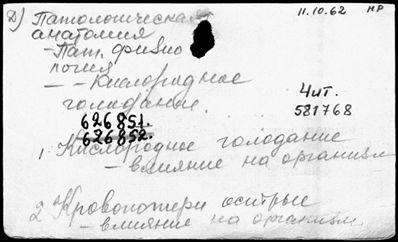 д) Патологическая 11.10.62 нр
анатомия
- Пат. физио
логия
- - Кислородное
голодание.
Чит.
581768
626851.
626852.
1. Кислородное голодание
- влияние на организм
2 Кровопотери острые
- влияние на организм.